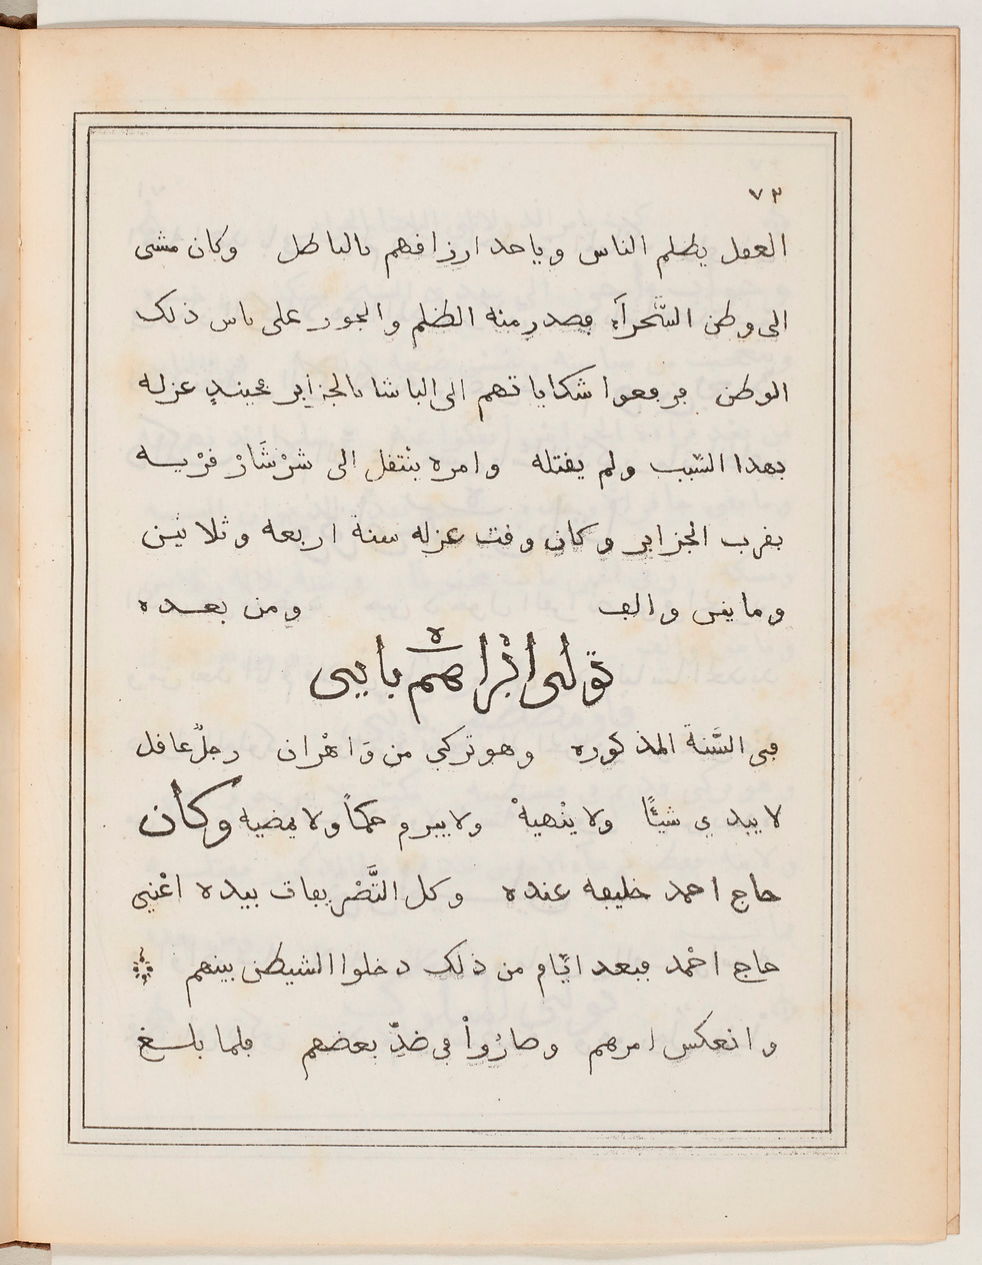 ٧٣
العفل يظلم الناس وياخد ارزافهم بالباطل وكان مشى
الى وطن السَّحرآءِ فصدر منه الظلم والجور على ناس ذلك
الوطن فرفعوا شكاياتهم الى الباشا بالجزاير فحينيذٍ عزله
بهدا السّبب ولم يفتله وامره ينْتفل الى شرْشَارْ فرْيـه
بفرب الجزاير وكان وفت عزله سنة اربعه وثلاثين
ومايتين والف ومن بعـده
تولى ابْراهيم بايي
في السَّنة المذكوره وهو تركي من وَاهْران رجلٌ عافل
لا يبدي شيئًا ولا ينْهيهْ ولا يبرم حكماً ولا يمضيه وكان
حاج احمد خليفه عنده وكل التَّصْريفات بيده اعْني
حاج احْمد فبعد ايّام من ذلك دخلوا الشيطن بينهم
وانعكس امرهم وصارُواْ في ضدّ بعضهم فلما بلـغ